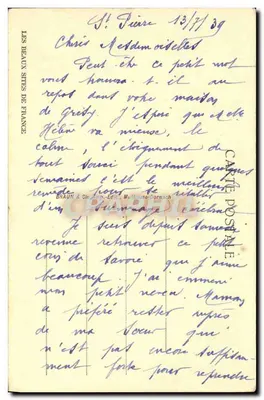 St Pierre 13/7/39
Chères Mesdemoiselles
Peut être ce petit mot
vous trouvera-t-il au
repos dans votre maison
de J'espère que Melle
va mieux, le
calme, l'éloignement de
tout souci pendant quelques
semaines c'est le meilleur
remède pour se
d'un
Je suis depuis samedi
revenue retrouver ce petit
coin de Savoie que j'aime
beaucoup. J'ai emmené
mon petit neveu. Maman
a préféré rester auprès
de ma Sœur qui
n'est pas encore suffisam-
ment forte pour reprendre
LES BEAUX SITES DE FRANCE
CARTE POSTALE